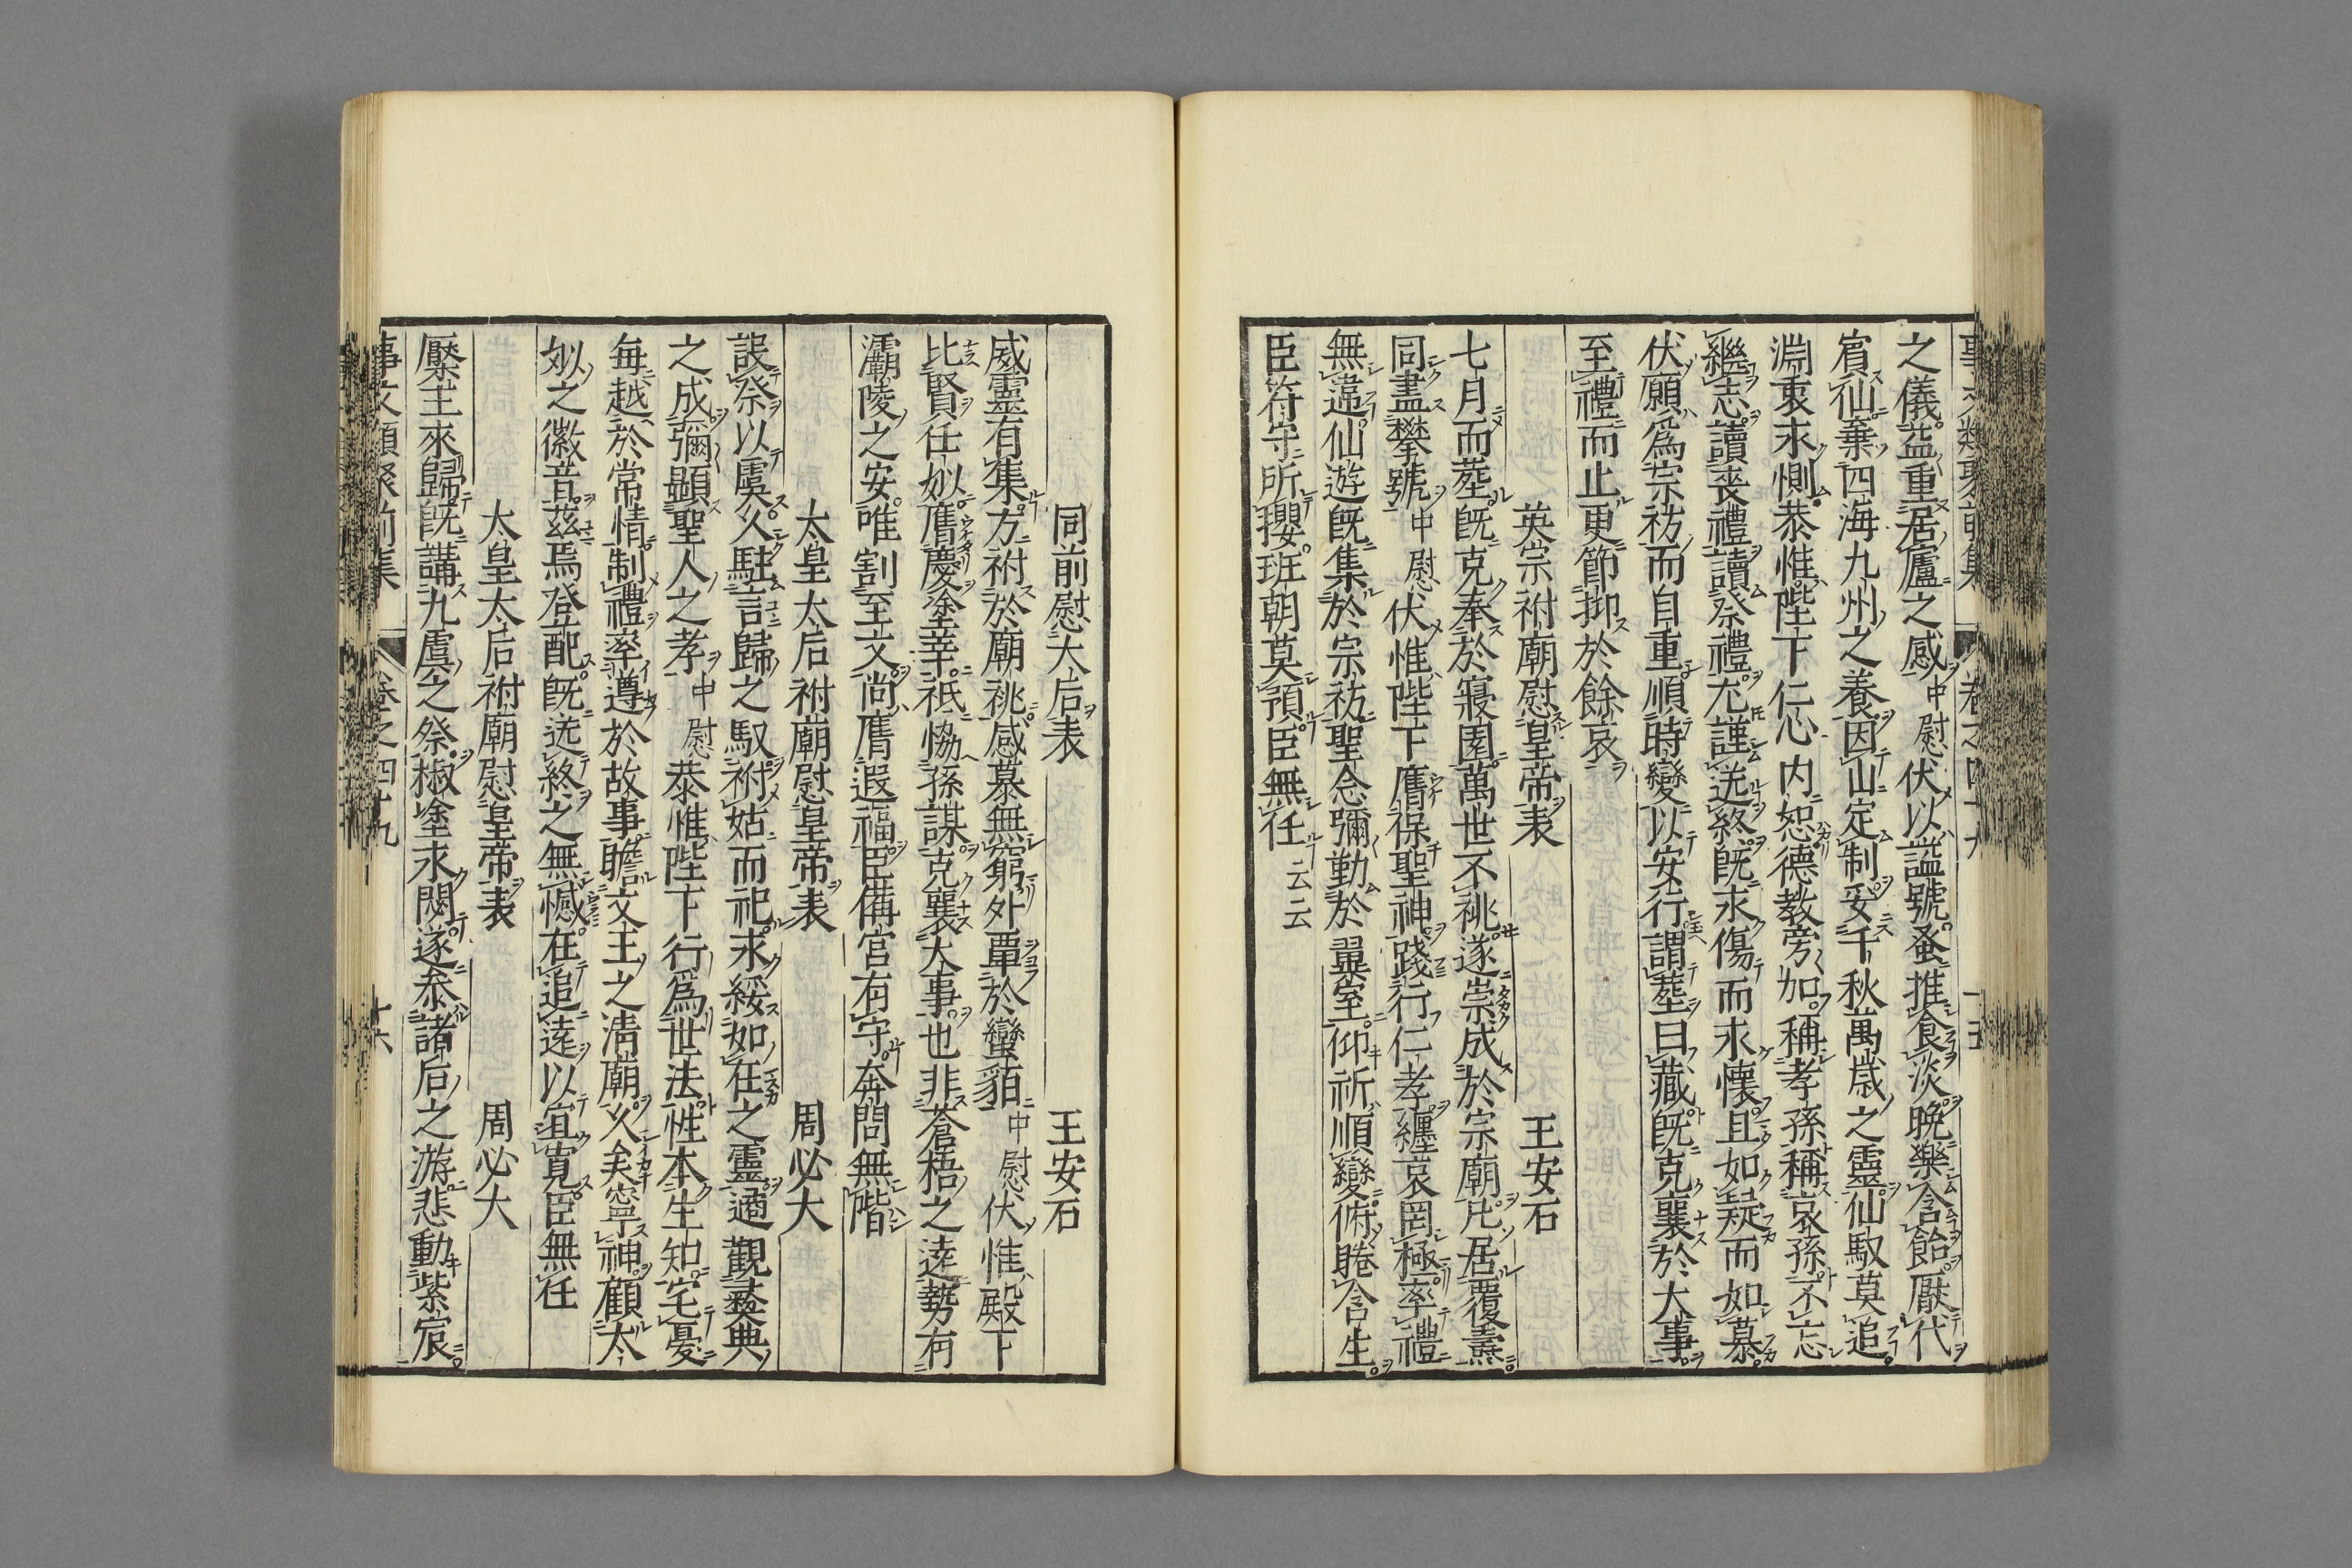 之儀益重居廬之感中慰伏以謚號蚤推食淡晩樂含飴厭代
賓仙棄四海九州之養因山定制妥千秋萬歲之靈仙馭莫追
淵衷永惻恭惟陛下仁心内恕德教旁加稱孝孫稱哀孫不忘
繼志讀喪禮讀祭禮尤謹送終既永傷而永懷且如疑而如慕
伏願爲宗祊而自重順時變以安行謂塟曰藏既克襄於大事
至禮而止更節抑於餘哀
英宗祔廟慰皇帝表 王安石
七月而塟既克奉於寢園萬世不祧遂崇成於宗廟凡居覆燾
同盡攀號中慰伏惟陛下膺保聖神踐行仁孝纏哀罔極率禮
無違仙遊既集於宗祊聖念彌勤於羣室仰祈順變俯睠含生
臣符守所攖班朝莫預臣無任云云
同前慰大后表 王安石
威靈有集方祔於廟祧感慕無窮外覃於蠻貊中慰伏惟殿下
比賢任姒膺慶塗莘祗恊孫謀克襄大事也非蒼梧之逺勢有
灞陵之安唯割至文尚膺遐福臣備宮有守奔問無階
太皇太后祔廟慰皇帝表 周必大
設祭以虞久駐言歸之馭祔姑而祀永綏如在之靈適觀彝典
之成彌顯聖人之孝中慰恭惟陛下行爲世法性本生知宅憂
每越於常情制禮率遵於故事瞻文王之淸廟乆矣寧神顧太
姒之徽音茲焉登配既送終之無憾在追逺以宜寛臣無任
太皇太后祔廟慰皇帝表 周必大
縻主來歸既講九虞之祭椒塗永閟遂叅諸后之游悲動紫宸
事文類聚前集 卷之四十九 十六